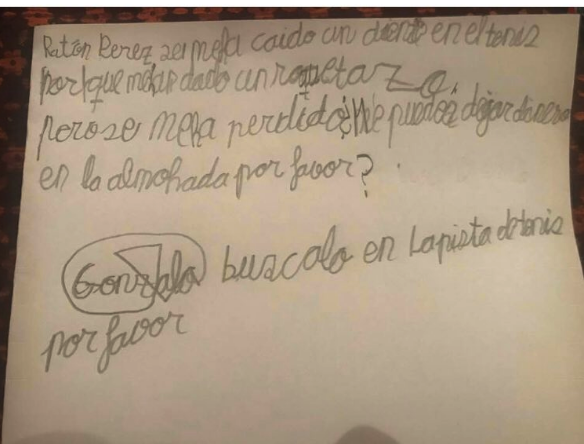 Ratón Perez se me ha caido un diente en el tenis
porque me han dado un raquetazo,
pero se me ha perdido ¿Me puedes dejar dinero
en la almohada por favor?
Gonzalo buscalo en la pista de tenis
por favor